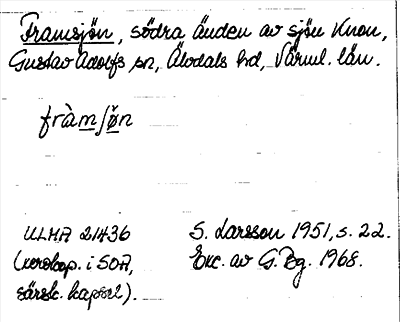 Framsjön, södra änden av sjön Knon,
Gustav Adolfs sn, Älvdals hd, Värml. län.
fràmʃøn
ULMA 21436 S. Larsson 1951, s. 22.
(xeroxkop. i SOA, Exc. av G. Bg. 1968.
särsk. kapsel).